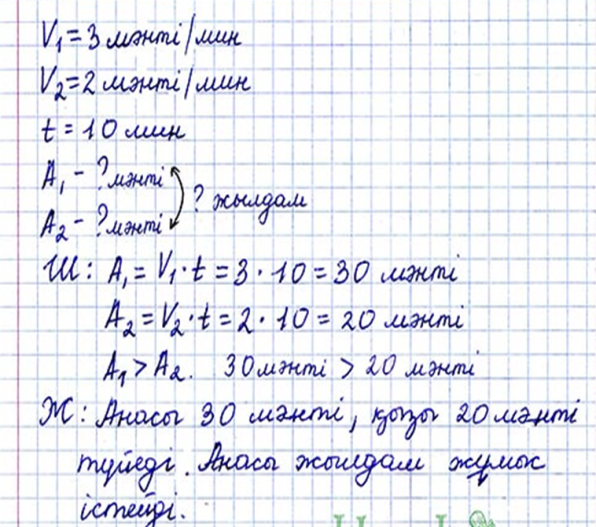 V₁=3 мәнті/мин
V₂=2 мәнті/мин
t=10 мин
A₁ - ? мәнті
? жылдам
A₂ - ? мәнті
Ш: A₁=V₁·t=3·10=30 мәнті
A₂=V₂·t=2·10=20 мәнті
A₁>A₂. 30 мәнті > 20 мәнті
Ж: Анасы 30 мәнті, қызы 20 мәнті
түйеді. Анасы жылдам жұмыс
істейді.